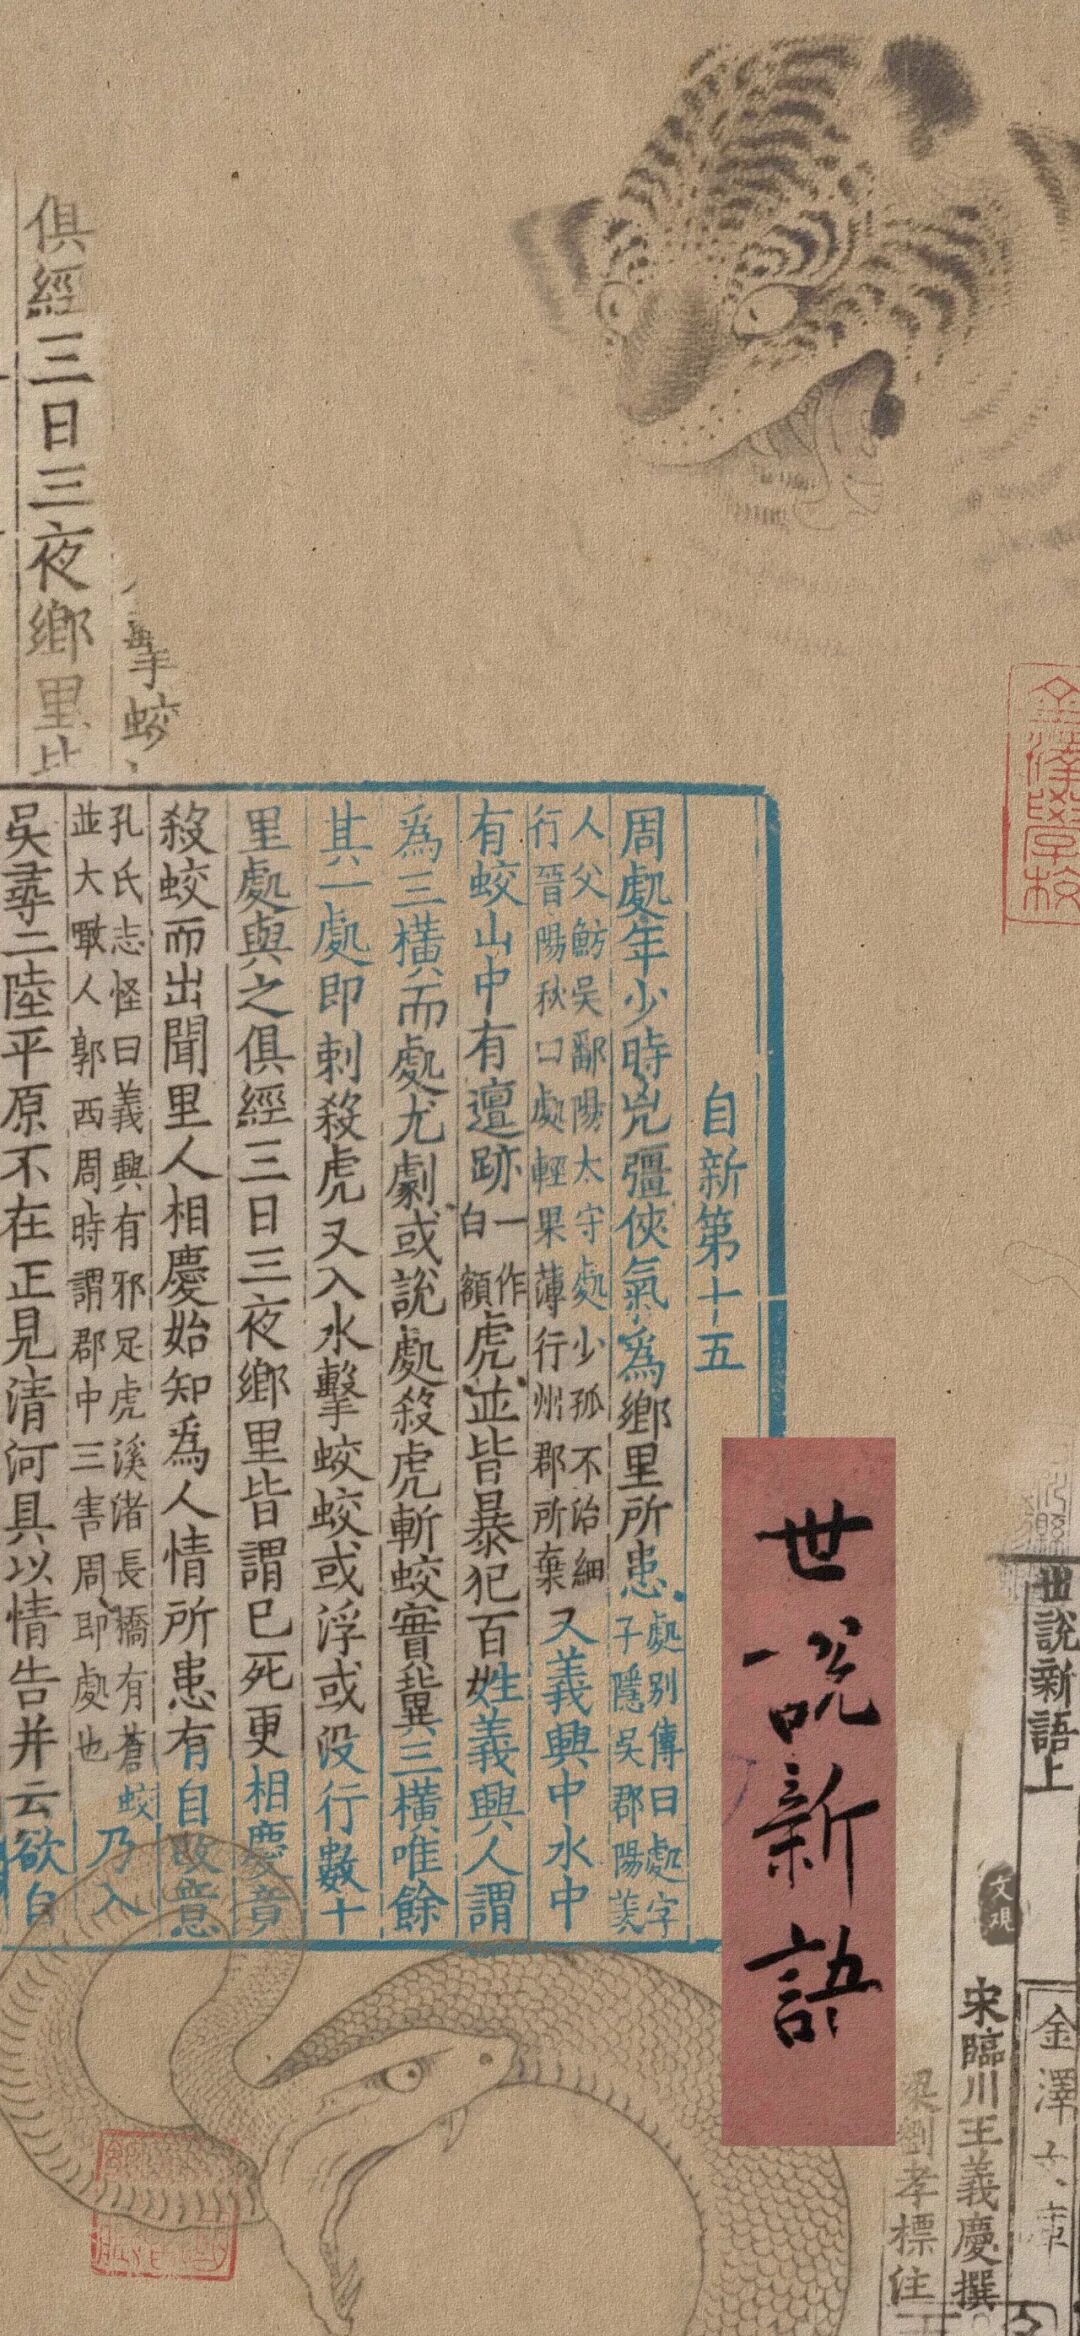 世說新語
世說新語上
金澤文庫
宋臨川王義慶撰
梁劉孝標注
文观
金澤學校
自新第十五
周處年少時兇彊俠氣爲鄉里所患
處別傳曰處字
子隱吳郡陽羨
人父魴吳鄱陽太守處少孤不治細
行晉陽秋曰處輕果薄行州郡所棄
又義興中水中
有蛟山中有邅跡
一作
白額
虎並皆暴犯百姓義興人謂
爲三橫而處尤劇或說處殺虎斬蛟實冀三橫唯餘
其一處即刺殺虎又入水擊蛟蛟或浮或沒行數十
里處與之俱經三日三夜鄉里皆謂已死更相慶竟
殺蛟而出聞里人相慶始知爲人情所患有自改意
孔氏志怪曰義興有邪足虎溪渚長橋有蒼蛟
並大噉人郭西周時謂郡中三害周即處也
乃入
吳尋二陸平原不在正見清河具以情告并云欲自
擊蛟
俱經三日三夜鄉里